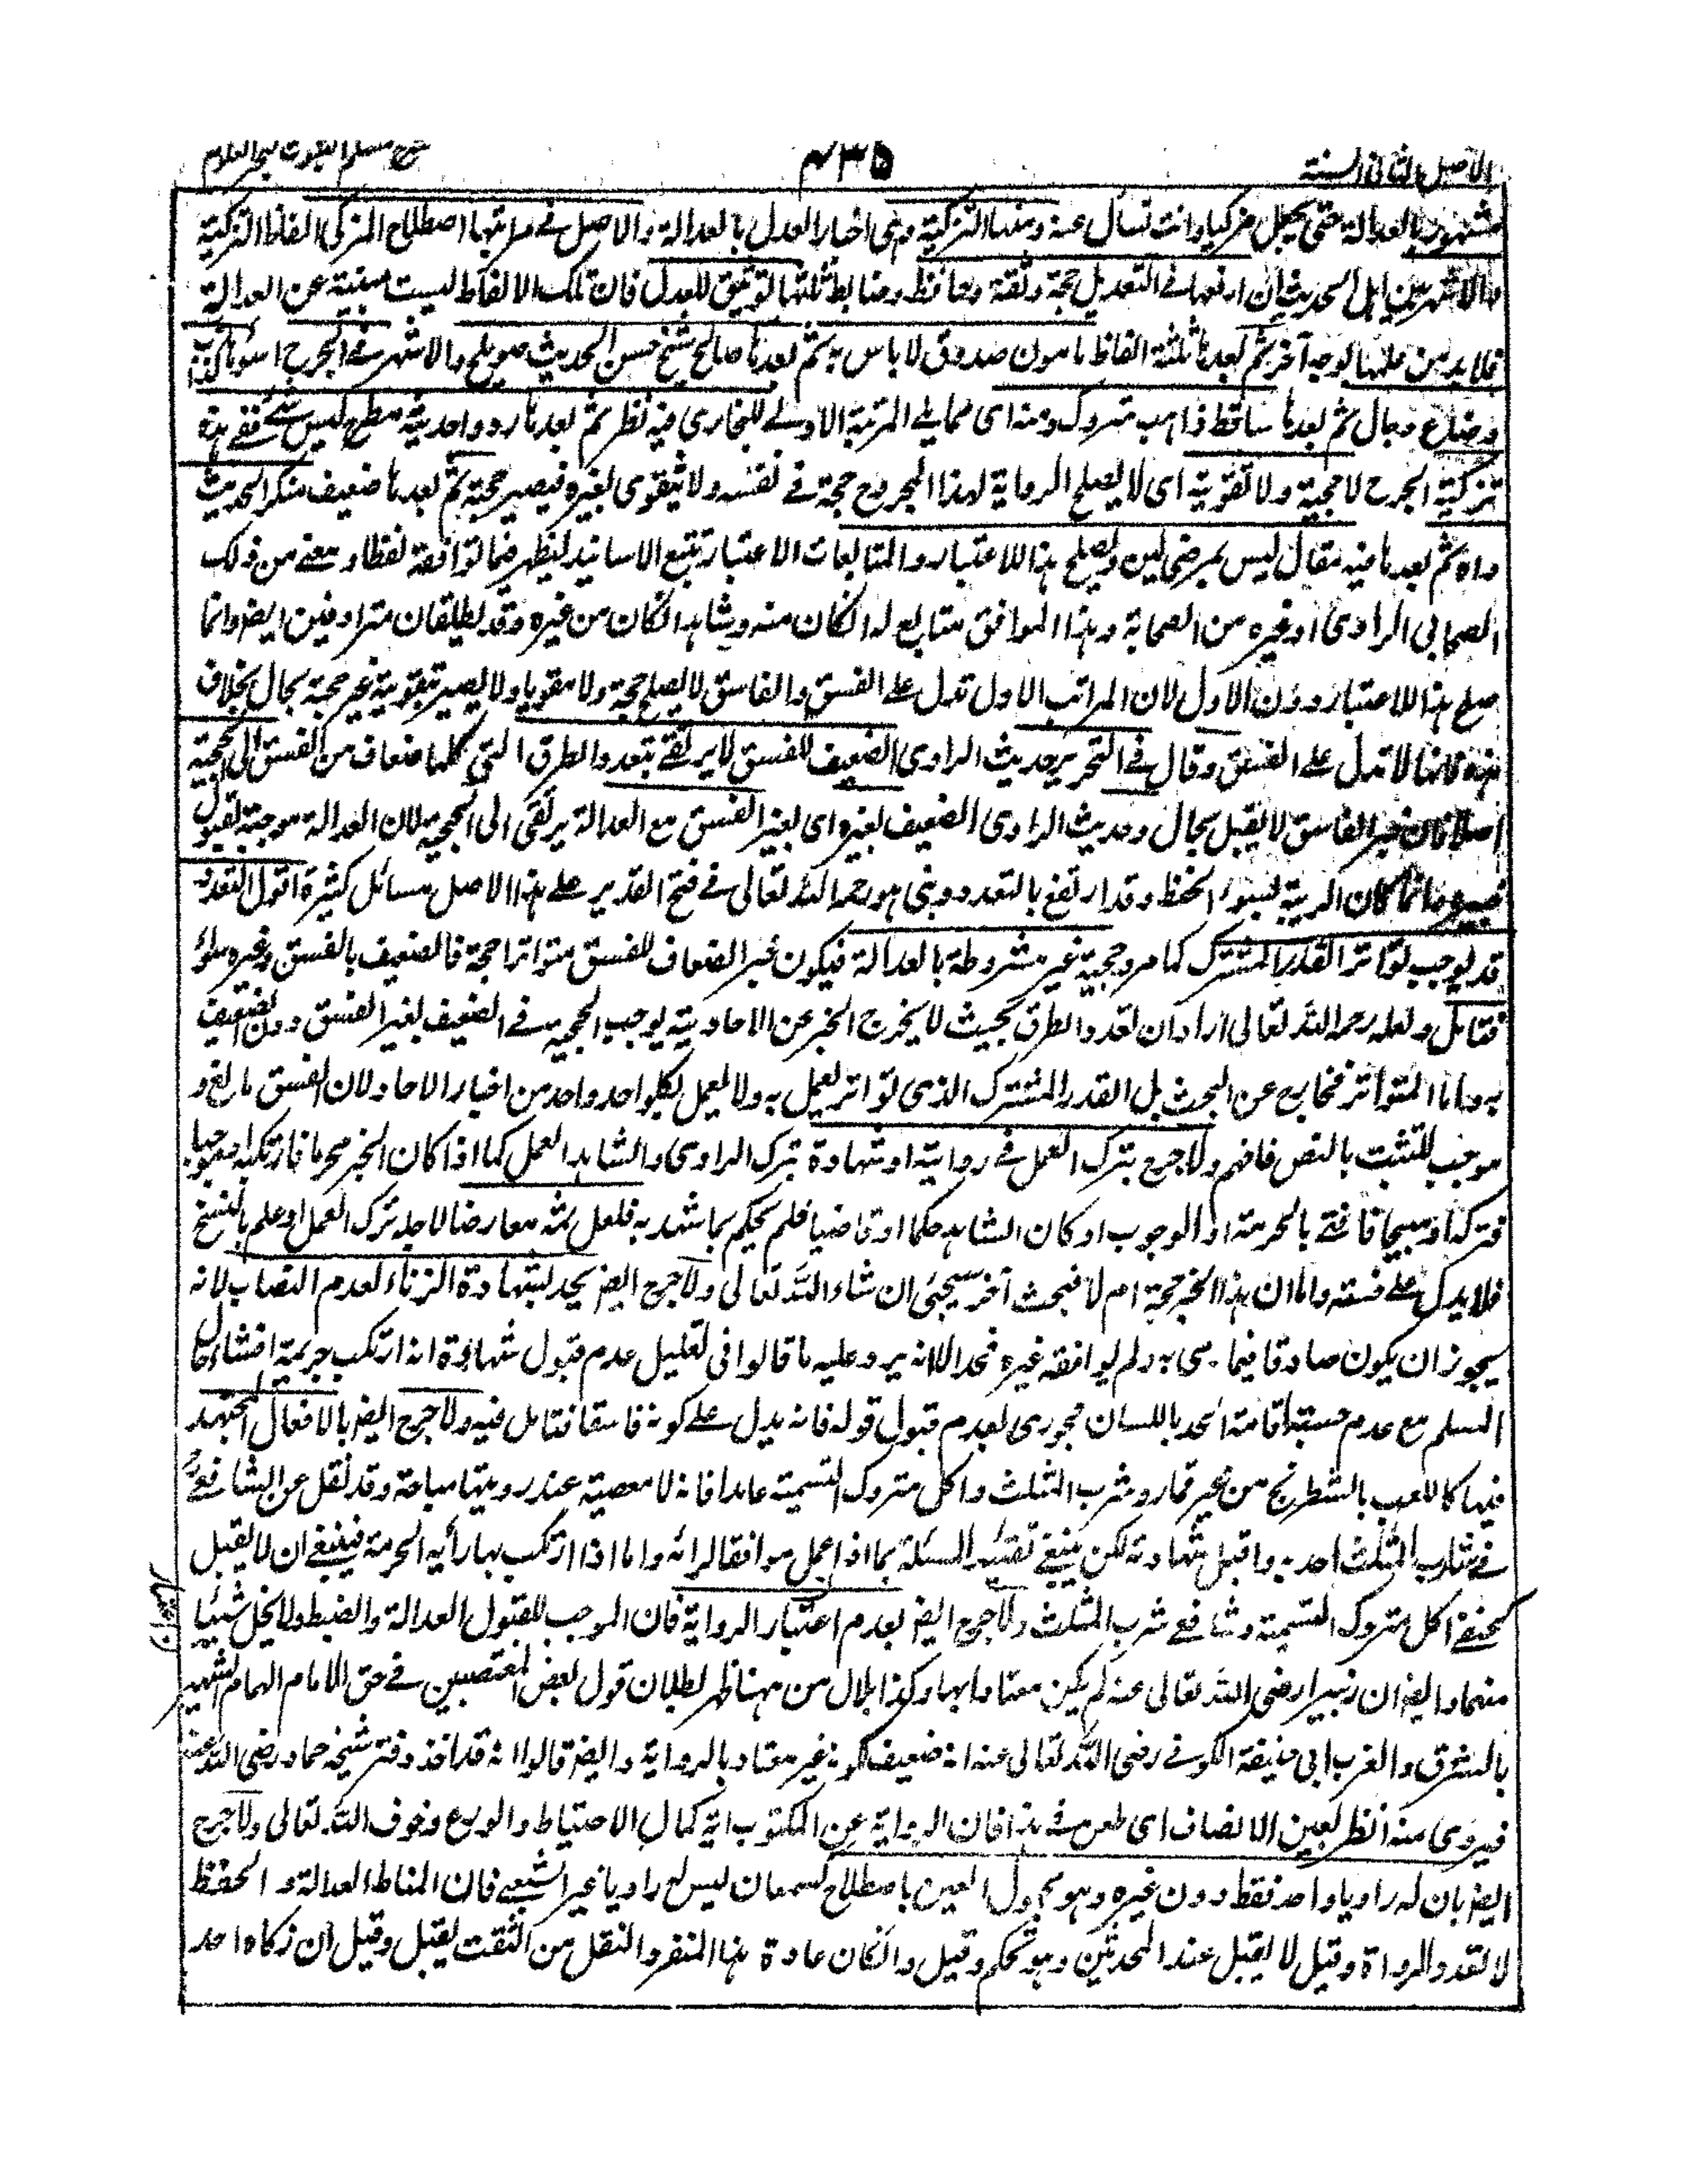 الاصل الثانی السنة
۴۳۵
شرح مسلم الثبوت لبحر العلوم
مشهود بالعدالة حتی یجعل مزکیا وانت تسأل عنه ومنها التزکیة وهی اخبار العدل بالعدالة والاصل فی مراتبها اصطلاح المزکی الفاظ التزکیة
والاشهر بین اهل الحدیث ان ارفعها فی التعدیل حجة وثقة وحافظ وضابط ثلثها توثیق للعدل فان تلک الالفاظ لیست مبنیة عن العدالة
فلا بد من علمها بوجه آخر ثم بعدها ثلثة الفاظ مامون صدوق لا باس به ثم بعدها صالح شیخ حسن الحدیث صویلح والاشهر فی الجرح اسوأ کذاب
وضاع دجال ثم بعدها ساقط ذاهب متروک ومنه ای مما یلی المرتبة الاولی للبخاری فیه نظر ثم بعدها ردوا حدیثه مطرح لیس بشئ ففی هذه
تزکیة الجرح لا حجیة ولا تقویة ای لا یصلح الروایة لهذا المجروح حجة فی نفسه ولا یتقوی لغیره فیصیر حجة ثم بعدها ضعیف منکر الحدیث
واه ثم بعدها فیه مقال لیس بمرضی لین ویصلح هذا للاعتبار والمتابعات الاعتبار تتبع الاسانید لیظهر ضما توافقه لفظا ومعنے من ذلک
الصحابی الراوی او غیره من الصحابة وهذا الموافق متابع له ان کان منه وشاهد ان کان من غیره وقد یطلقان مترادفین ایضا وانما
صلح هذا للاعتبار دون الاول لان المراتب الاول تدل علی الفسق والفاسق لا یصلح حجة ولا مقویا ولا یصیر بتقویة غیر حجة بحال بخلاف
هذه فانها لا تدل علی الفسق وقال فی التحریر حدیث الراوی الضعیف للفسق لا یرتقے بتعدد الطرق التی کلها ضعاف من الفسق الی الحجیة
اصلا فان خبر الفاسق لا یقبل بحال وحدیث الراوی الضعیف لغیره ای لغیر الفسق مع العدالة یرتقی الی الحجیة لان العدالة موجبة لقبول
خبره وانما کان الریبة لسوء الحفظ وقد ارتفع بالتعدد وبنی هو رحمه الله تعالی فی فتح القدیر علی هذا الاصل مسائل کثیرة اقول التعدد
قد یوجب تواتر القدر المشترک کما مر وحجیة غیر مشروطة بالعدالة فیکون خبر الضعاف للفسق متواترا حجة فالضعیف بالفسق وغیره سواء
فتامل ولعله رحمه الله تعالی اراد ان تعدد الطرق بحیث لا یخرج الخبر عن الاحادیة یوجب الحجیة فی الضعیف لغیر الفسق دون الضعیف
به واما المتواتر فخارج عن البحث بل القدر المشترک الذی تواتر یعمل به ولا یعمل بکل واحد واحد من اخبار الاحاد ولان الفسق مانع و
موجب للتثبت بالنص فافهم ولا جرح بترک العمل فی روایة او شهادة بترک الراوی والشاهد العمل کما اذا کان الخبر محرما فارتکبه او موجبا
فترکه او مبیحا فافتے بالحرمة او الوجوب او کان الشاهد حکما او قاضیا فلم یحکم بما شهد به فلعل ثمه معارضا لاجله ترک العمل او علم بالنسخ
فلا یدل علی فسقه واما ان هذا الخبر حجة ام لا فبحث آخر سیجئ ان شاء الله تعالی ولا جرح ایضا بحد لشهادة الزناء لعدم النصاب لانه
یجوز ان یکون صادقا فیما رمی به ولم یوافقه غیره فحد الا انه یرد علیه ما قالوا فی تعلیل عدم قبول شهادة انه ارتکب جریمة افشاء حال
المسلم مع عدم حسبة اقامة الحد باللسان فجوزی بعدم قبول قوله فانه یدل علی کونه فاسقا فتامل فیه ولا جرح ایضا بالافعال المجتهد
فیها کاللعب بالشطرنج من غیر قمار وشرب المثلث واکل متروک التسمیة عامدا فانه لا معصیة عند رویتها مباحة وقد نقل عن الشافعی
فی شارب المثلث احده واقبل شهادته لکن ینبغے تقیید المسئلة بما اذا عمل موافقا لرائه واما اذا ارتکب بها رأیه الحرمة فینبغی ان لا یقبل
کحنفے اکل متروک التسمیة وشافعی شرب المثلث ولا جرح ایضا بعدم اعتیار الروایة فان الموجب للقبول العدالة والضبط ولا یخل شیئا
منهما وایضا ان زبیرا رضی الله تعالی عنه لم یکن معتادا بها وکذا بلال من ههنا ظهر بطلان قول بعض المتعصبین فی حق الامام الهمام الشهیر
بالشرق والغرب ابی حنیفة الکوفی رضی الله تعالی عنه انه ضعیف لکونه غیر معتاد بالروایة وایضا قالوا انه قد اخذ دفتر شیخه حماد رضی الله عنه
فیروی منه انظر بعین الانصاف ای طعن فی هذا فان الروایة عن المکتوب آیة کمال الاحتیاط والورع وخوف الله تعالی ولا جرح
ایضا بان له راویا واحد فقط دون غیره وهو مجهول العین باصطلاح کسمعان لیس له راویا غیر الشعبی فان المناط العدالة والحفظ
لا تعدد الرواة وقیل لا یقبل عند المحدثین وهو تحکم وقیل وان کان عادة هذا المنفرد النقل من الثقت یقبل وقیل ان زکاه احد